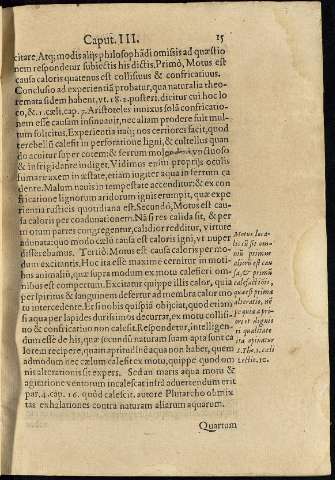 Caput. III. 15
citare. Atq; modis alijs philosophãdi omissis ad quæstio
nem respondetur subiectis his dictis. Primò, Motus est
causa caloris quatenus est collisiuus & confricatiuus.
Conclusio ad experientiã probatur, qua naturalia theo
remata fidem habent, vt. 18. 2. posteri. dicitur cui hoc lo
co, & 1. cæli. cap. 7. Aristoteles innixus solã confricatio-
nem esse causam insinuauit, nec aliam prodere fuit mul-
tum solicitus. Experientia itaq; nos certiores facit, quod
terebellũ calefit in perforatione ligni, & cultellus quan
do acuitur super cotem: & ferrum molendo
& infrigidante indiget. Vidimus etiam proprijs oculis
fumare axem in æstate, etiam iugiter aqua in ferrum ca
dente. Malum nauis in tempestate accenditur: & ex con
fricatione lignorum aridorum ignis erumpit, quæ expe
rientia rusticis quotidiana est. Secundò, Motus est cau-
sa caloris per coadunationem. Nã si res calida sit, & per
motum partes congregentur, calidior redditur, virtute
adunata: quo modo cælũ causa est caloris igni, vt nuper
disserebamus. Tertiò. Motus est causa caloris per mo-
dum excitantis. Hoc ita esse maximè cernitur in moti-
bus animaliũ, quæ supra modum ex motu calefieri om-
nibus est compertum. Excitatur quippe illis calor, quia
per spiritus & sanguinem defertur ad membra calor mo
tu intercedente. Et si nobis quispiã obijciat, quod etiam
si aqua per lapides durissimos decurrat, ex motu collisi-
uo & confricatiuo non calefit. Respondetur, intelligen-
dum esse de his, quæ secundũ naturam suam apta sunt ca
lorem recipere, quam aptitudinẽ aqua non habet, quem
admodum nec cælum calefit ex motu, quippe quod om
nis alterationis sit expers. Sed an maris aqua motu &
agitatione ventorum incalescat infrà aduertendum erit
par. 4. cap. 16. quòd calescit. autore Plutarcho ob mix
tas exhalationes contra naturam aliarum aquarum.
Motus loca-
lis cũ sit om-
niũ primus
aliorũ est cau
sa, & primũ
calefactionis,
quæ est prima
alteratio, nẽ
pe quia prio-
ris et dignio
ris qualitatis
vt opinatur
S. Tho. 2. cæli
lectio. 10.
Quartum